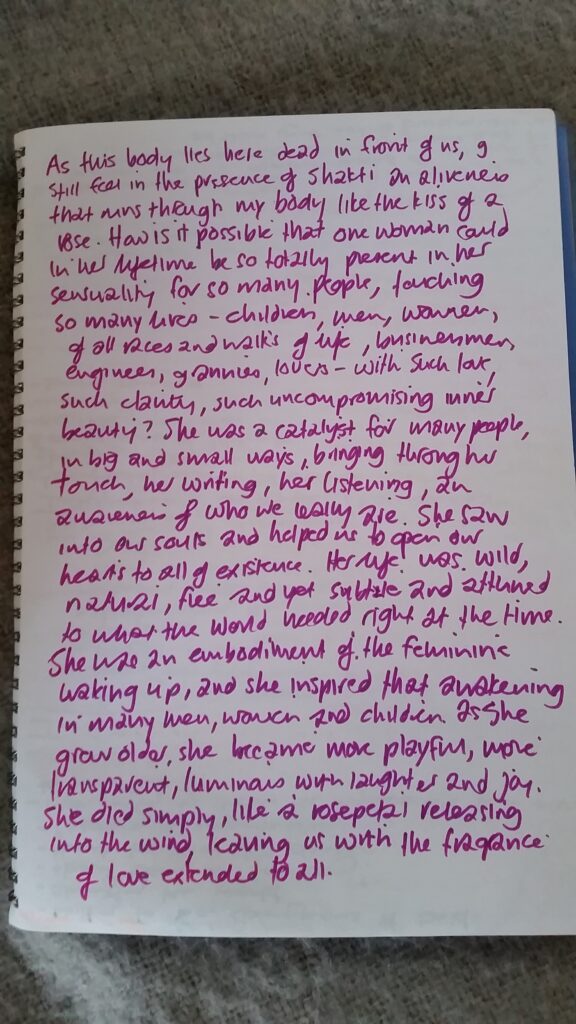 As this body lies here dead in front of us, I
still feel in the presence of Shakti an aliveness
that runs through my body like the kiss of a
rose. How is it possible that one woman could
in her lifetime be so totally present in her
sensuality for so many people, touching
so many lives - children, men, women,
of all races and walks of life, businessmen,
engineers, grannies, lovers - with such love,
such clarity, such uncompromising inner
beauty? She was a catalyst for many people,
in big and small ways, bringing through her
touch, her writing, her listening, an
awareness of who we really are. She saw
into our souls and helped us to open our
hearts to all of existence. Her life was wild,
natural, free and yet subtle and attuned
to what the world needed right at the time.
She was an embodiment of the feminine
waking up, and she inspired that awakening
in many men, women and children. As she
grew older, she became more playful, more
transparent, luminous with laughter and joy.
She died simply, like a rosepetal releasing
into the wind, leaving us with the fragrance
of love extended to all.